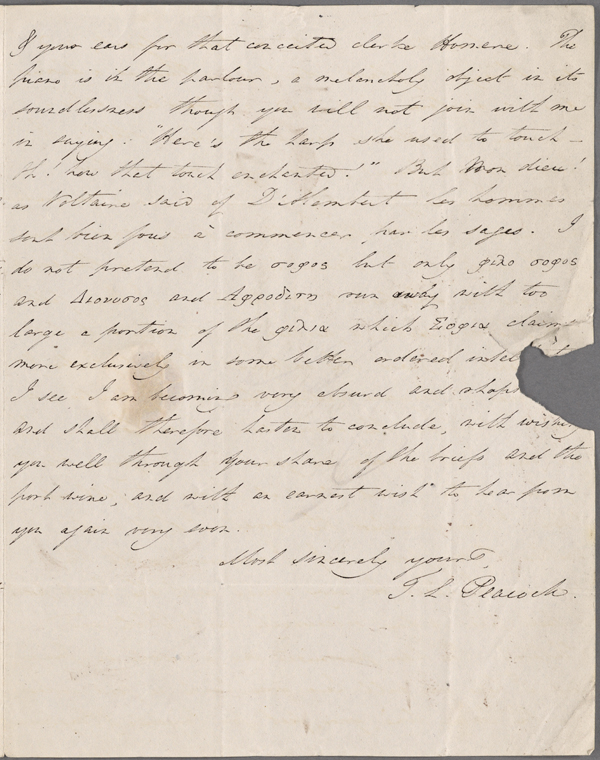 & your ears for that conceited clerke Homere. The
piano is in the parlour, a melancholy object in its
soundlessness though you will not join with me
in saying: "Here's the harp she used to touch –
Oh! how that touch enchanted!" But Mon dieu!
as Voltaire said of D'Alembert les hommes
sont bien fous à commencer par les sages. I
do not pretend to be σοφος but only φιλο σοφος
and Διονυσος and Αφροδιτη run away with too
large a portion of the φιλια which Σοφια claims
more exclusively in some better ordered intel
I see I am becoming very absurd and rhaps
and shall therefore hasten to conclude, with wishing
you well through your share of the briefs and the
port wine, and with an earnest wish to hear from
you again very soon.
Most sincerely yours,
T. L. Peacock.